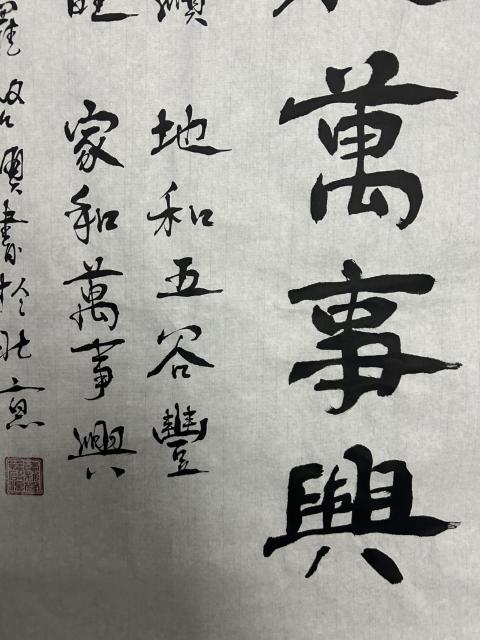 萬事興
順
地和五谷豐
旺
家和萬事興
羅
書於北京